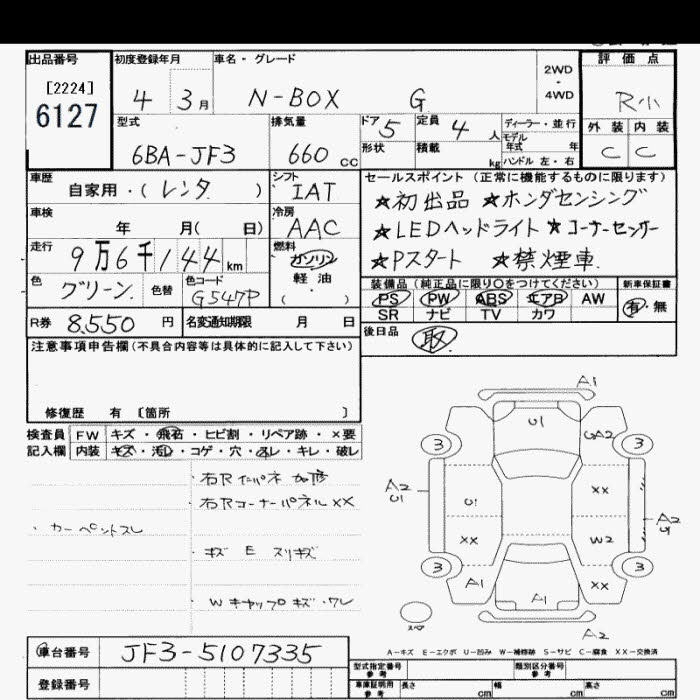 出品番号 初度登録年月 車名・グレード 2WD・4WD 評価点
[2224] 6127 4 3月 N-BOX G R小
型式 排気量 ドア 5 定員 4人 ディーラー・並行 外装 内装
6BA-JF3 660cc 形状 積載 kg モデル年式 年 ハンドル左・右 C C
車歴 自家用・(レンタ) シフト IAT セールスポイント(正常に機能するものに限ります)
☆初出品 ☆ホンダセンシング
車検 年 月(日) 冷房 AAC ☆LEDヘッドライト ☆コーナーセンサー
走行 9万6千144km 燃料 ガソリン 軽油 ( ) ☆Pスタート ☆禁煙車
色 グリーン 色替 色コード G547P 装備品(純正品に限り○をつけてください) 新車保証書
PS PW ABS エアB AW 有・無
SR ナビ TV カワ
R券 8,550円 名変通知期限 月 日 後日品 取
注意事項申告欄(不具合内容等は具体的に記入して下さい)
修復歴 有 [箇所 ]
検査員 FW キズ・飛石・ヒビ割・リペア跡・×要
記入欄 内装 キズ・汚れ・コゲ・穴・スレ・キレ・破レ
・右Rインパネ 加修
・右Rコーナーパネル XX
・カーペントスレ
・キズ E スリキズ
・Wキャップキズ・ワレ
A1
U1 GA2
3 3
A2 U1 U1 XX A2
XX W2
3 3
A1 A1 XX
スペア A2
A-キズ E-エクボ U-凹み W-補修跡 S-サビ C-腐食 XX-交換済
車台番号 JF3-5107335
登録番号
型式指定番号 参考 類別区分番号 参考
車庫証明用 参考 長さ cm 幅 cm 高さ cm